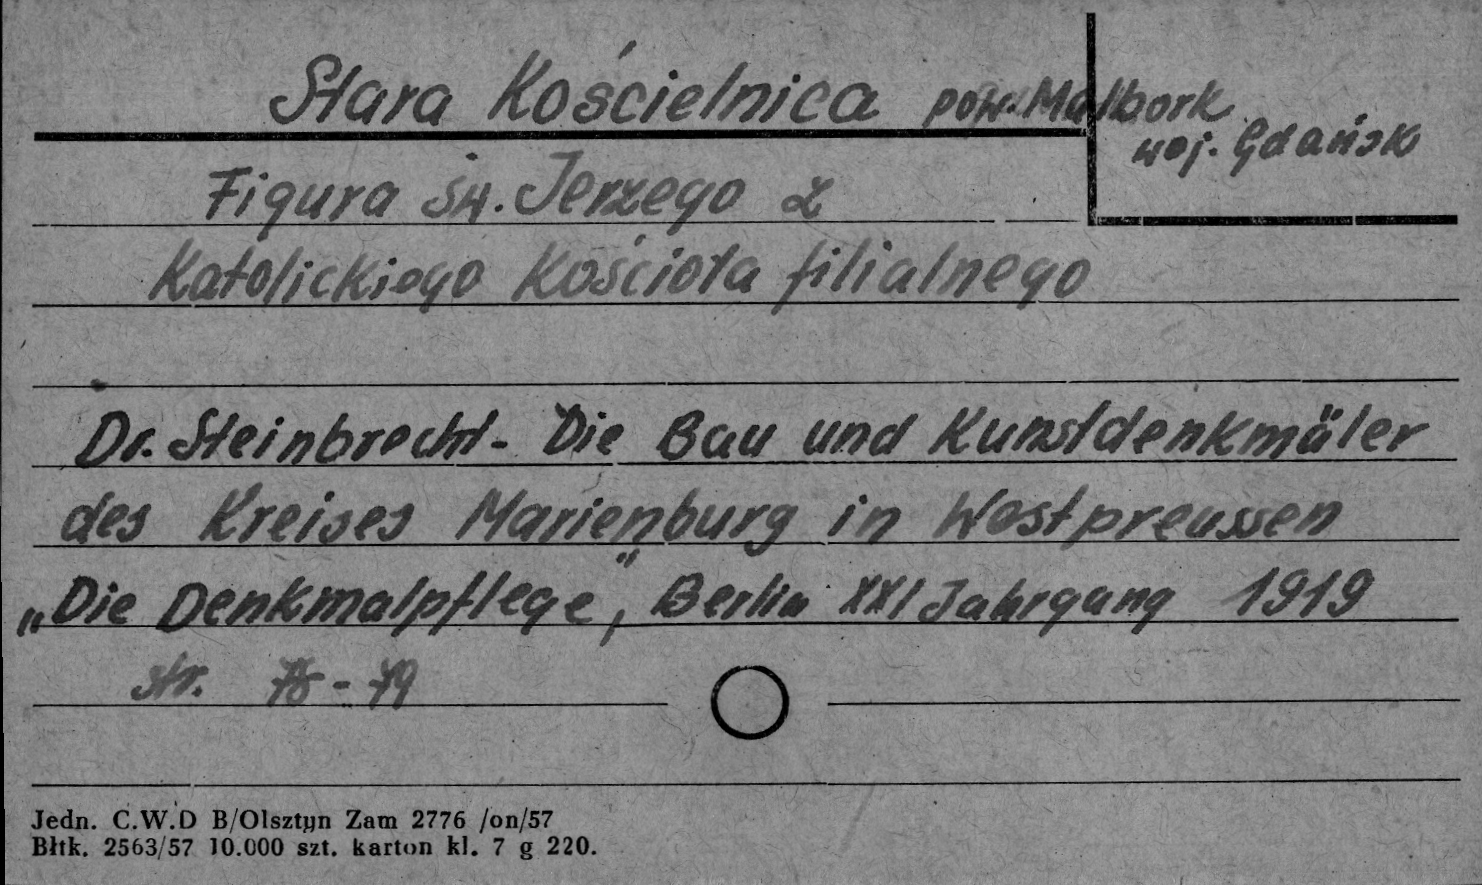 Stara Kościelnica pow. Malbork
woj. Gdańsk
Figura św. Jerzego z
Katolickiego Kościoła filialnego
Dr. Steinbrecht - Die Bau und Kunstdenkmäler
des Kreises Marienburg in Westpreussen
„Die Denkmalpflege”, Berlin XXI Jahrgang 1919
str. 75-79
Jedn. C.W.D B/Olsztyn Zam 2776 /on/57
Błtk. 2563/57 10.000 szt. karton kl. 7 g 220.